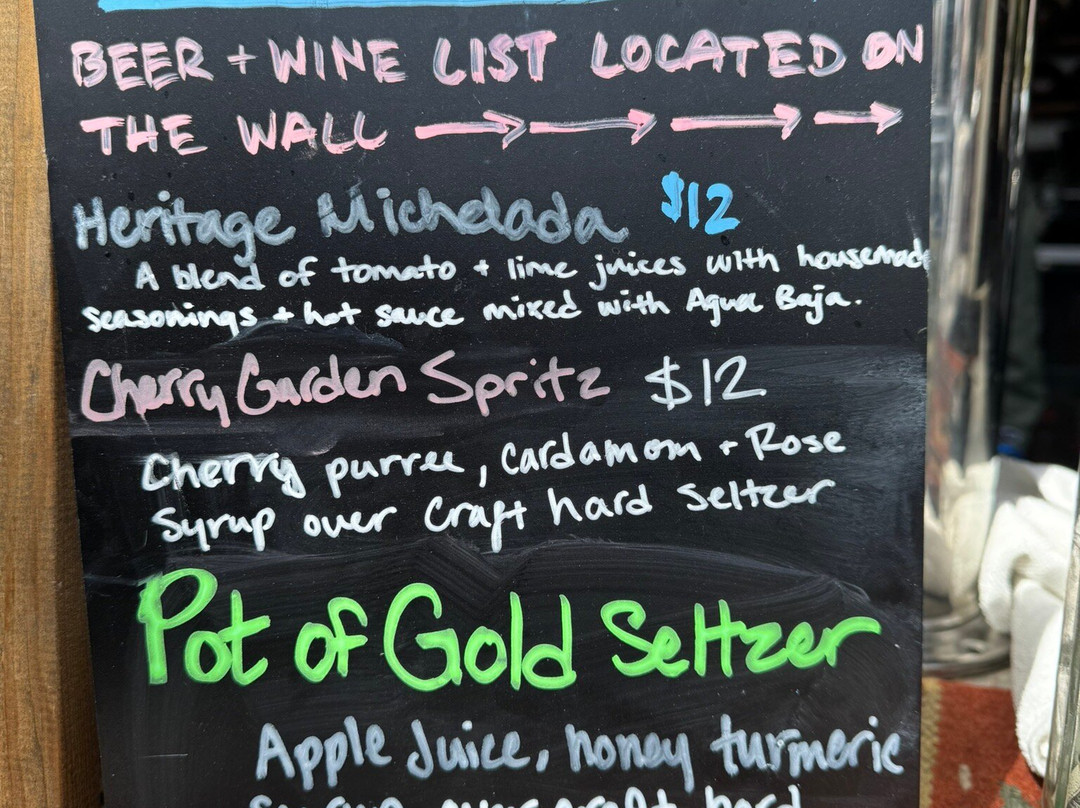 BEER + WINE LIST LOCATED ON
THE WALL → → → →
Heritage Michelada $12
A blend of tomato + lime juices with housemade
seasonings + hot sauce mixed with Agua Baja.
Cherry Garden Spritz $12
Cherry purree, Cardamom + Rose
Syrup over Craft hard Seltzer
Pot of Gold Seltzer
Apple Juice, honey turmeric
over craft hard